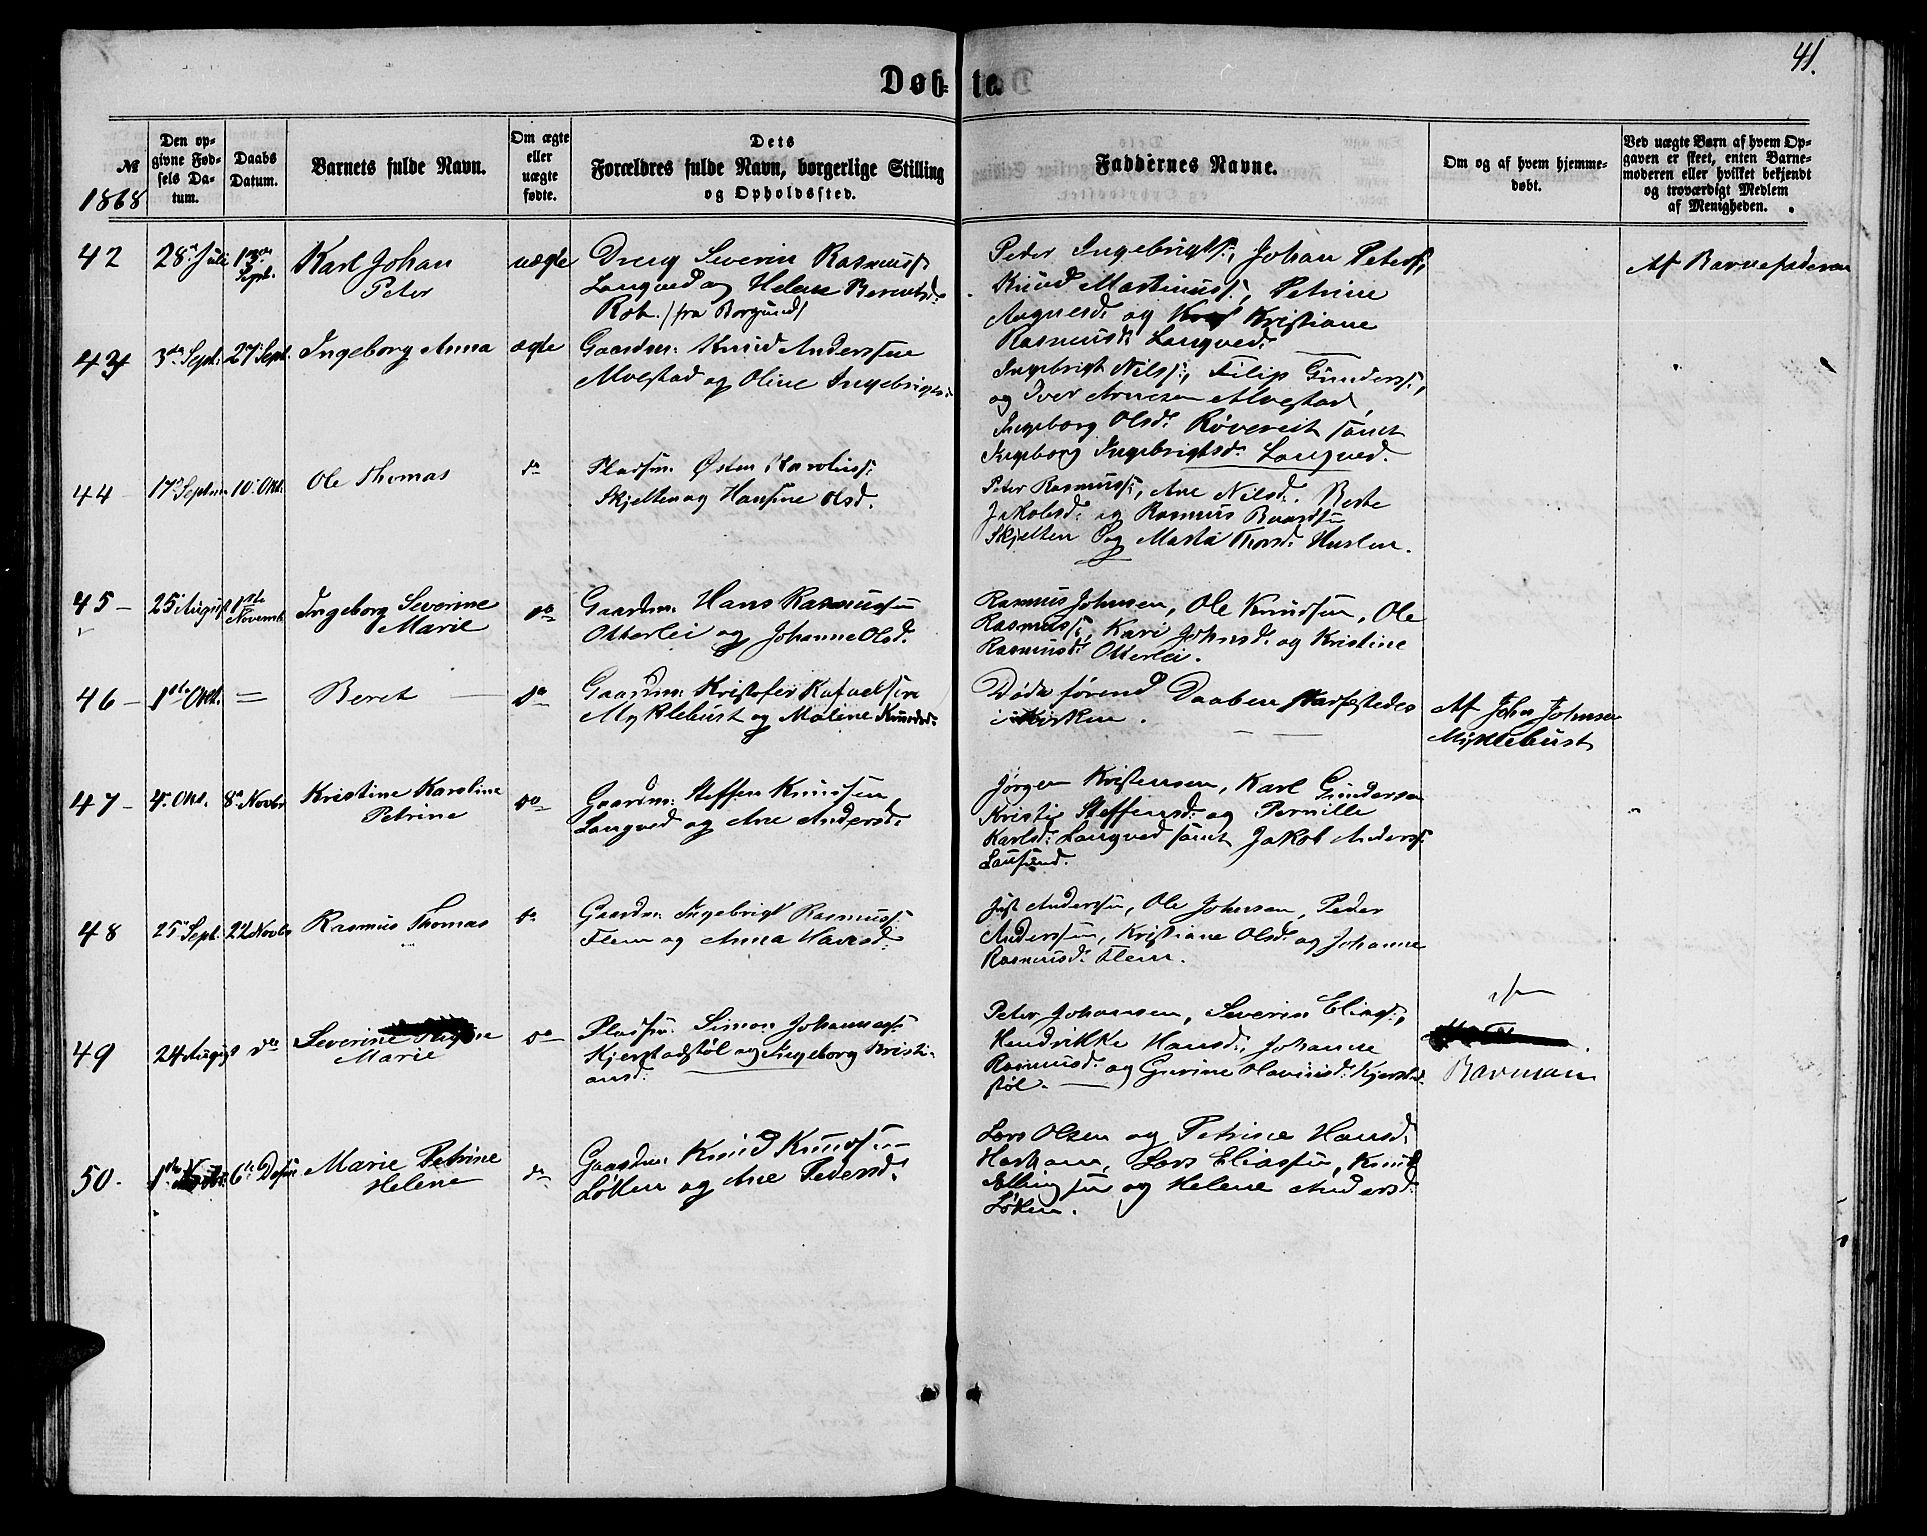 41.
Døb-te.
№
1868
Den op-
givne Fød-
sels Da-
tum.
Daabs
Datum.
Barnets fulde Navn.
Om ægte
eller
uægte
fødte.
Dets
Forældres fulde Navn, borgerlige Stilling
og Opholdssted.
Faddernes Navne.
Om og af hvem hjemme-
døbt.
Ved uægte Børn af hvem Op-
gaven er skeet, enten Barne-
moderen eller hvilket bekjendt
og troværdigt Medlem
af Menigheden.
42 28 Juli Sept. Karl Johan
Peter
uægte
Dreng Severin Rasmuss:
Langved og Helene Berentsd:
/fra Borgund/
Peter Ingebrigts:, Johan Peters:,
Knud Martinuss:, Petrine
og Kristiane
Rasmusd: Langved.
Af Barnefaderen
43 3die Sept: 27 Sept. Ingeborg Anna ægte
Gaardm: Knud Anderssen
Alvestad og Oline Ingebrigts:
Ingebrigt Nilss:, Filip Gunderss:,
og Iver Arnesen Alvestad,
Ingeborg Olsd: samt
Ingeborg Ingebrigtsd: Langved.
44 17 Septem 10 Okt: Ole Thomas do
Pladsm: Østen Karoliuss:
Skjelten og Hansine Olsd.
Peter Rasmuss:, Ane Nilsd: Berte
Jakobsd: og Rasmus
Skjelten og Marta Huslen.
45 - 25 August 1ste
Novemb. Ingeborg Severine
Marie
do
Gaardm: Hans Rasmussen
Otterlei og Johanne Olsd.
Rasmus Johnsen, Ole Knudsen, Ole
Rasmuss:, Kari Johnsd: og Kristine
Rasmusd: Otterlei.
46 - 1ste Okt. = Beret do
Gaardm: Kristofer Rafaelsen
Myklebust og Malene Knudsd:
Døde førend Daaben stadfæstedes
i Kirken.
Af John Johnsen
Myklebust
47 - 4. Okt. 8de Novbr Kristine Karoline
Petrine
do
Gaardm: Steffen Knudsen
Langved og Ane Andersd:
Jørgen Kristensen, Karl Gundersen
Kristie Steffensd: og Pernille
Karlsd: Langved samt Jakob Anderss:
Lausund.
48 25 Sept. 22 Novbr Rasmus Thomas do
Gaardm: Ingebrigt Rasmuss:
Flem og Anna
Just Anderssen, Ole Johnsen, Peder
Anderssen, Kristiane Olsd: og Johanne
Rasmusd: Flem.
49 24 August do Severine
Marie
do
Pladsm: Simon Johannes:
Kjerstadstøl og Ingeborg Kristi-
ansd:
Peter Johansen, Severin Eliass:,
Hendrikke Hansd:, Johanne
Rasmusd: og Gurine Kjerstad
støl.
af
50. 1ste 6te Desbr Marie Petrine
Helene
do
Gaardm: Knud Knudsen
Løkken og Ane Pedersd:
Lars Olsen og Petrine Hansd:
Harham, Lars Eliassen, Knud
Ellingsen og Helene Andersd:
Løken.